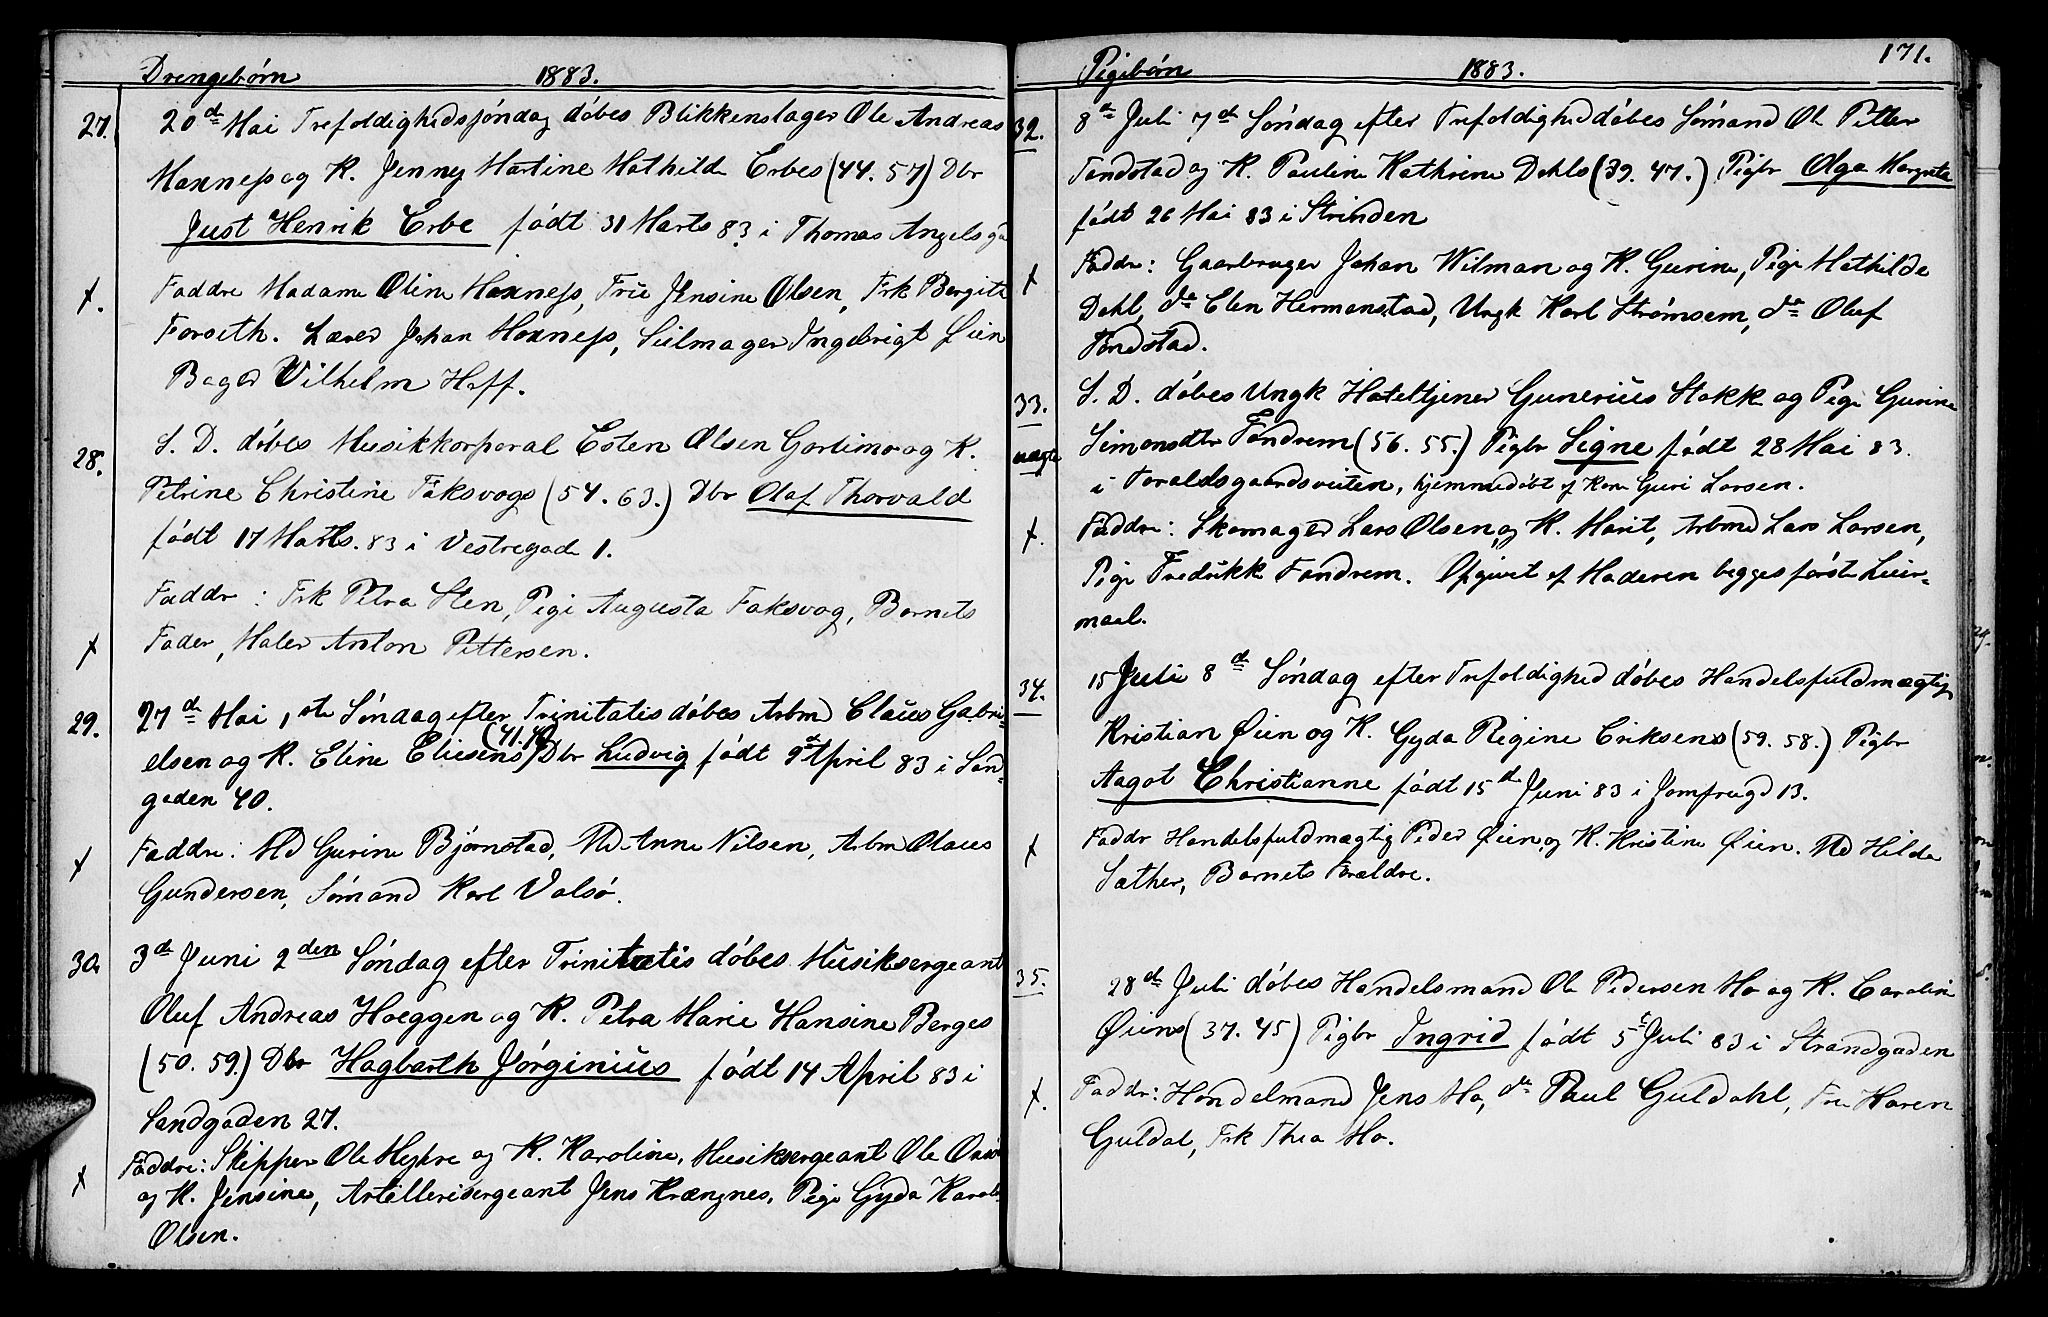 Drengebørn 1883.
27. 20de Mai Trefoldighedssøndag døbes Blikkenslager Ole Andreas
Moxness og K. Jenny Martine Mathilde Erbes (44. 57) Dbr
Just Henrik Erbe født 31 Marts 83 i Thomas Angelsga
+. Faddre Madame Oline Moxness, Frü Jensine Olsen, Frk Bergitte
Forseth. Lærer Johan Moxness, Seilmager Ingebrigt Øien
Bager Vilhelm Hoff.
28. S. D. døbes Musikkorporal Esten Olsen Gartimo og K.
Petrine Christine Faksvogs (54. 63.) Dbr Olaf Thorvald
født 17 Marts. 83 i Vestregade 1.
Faddr : Frk Petra Sten, Pige Augusta Faksvog, Barnets
+ Fader, Maler Anton Pettersen.
29. 27de Mai 1ste Søndag efter Trinitatis døbes Arbmd Claüs Gabri-
elsen og K. Eline Eliesens (41.40) Dbr Ludvig født 9de April 83 i San-
gaden 40.
+ Faddre: Md Gurine Bjørnstad, Md Anne Nilsen, Arbm Olaus
Gundersen, Sømand Karl Valsø.
30. 3de Juni 2den Søndag efter Trinitatis døbes Musiksergeant
Oluf Andreas Hoeggen og K. Petra Marie Hansine Berges
(50. 59.) Dbr Hagbarth Jørginiüs født 14 April 83 i
Sandgaden 27.
Faddre: Skipper Ole Myhre og K. Karoline, Musiksergeant Ole
+ og K. Jensine, Artillerisergeant Jens Krængnes, Pige Gyda Karol
Olsen.
Pigebørn 1883. 171.
32. 8de Juli 7de Søndag efter Trefoldighed døbes Sømand Ole Petter
Fandstad og K. Pauline Kathrine Dahls (39. 47.) Pigbr Olga Margrete
født 26 Mai 83 i Strinden
+ Faddre: Gaarbruger Johan Wilman og K. Gurine, Pige Mathilde
Dahl, do Elen Hermanstad, Ungk Karl Strømsem, do Oluf
Fandstad.
33. S. D. døbes Ungk Hoteltjener Guneriüs Stokk og Pige Gurine
uægte Simonsdtr Fandrem (56. 55.) Pigbr Signe født 28 Mai 83.
i Taraldsgaardsveiten, hjemmedøbt af Kone Guri Larsen.
+. Faddre: Skomager Lars Olsen og K. Marit, Arbmd Lars Larsen,
Pige Fredrikk Fandrem. Opgivet af Moderen begges første Leier-
maal.
34. 15 Juli 8de Søndag efter Trefoldighed døbes Handelsfuldmægtig
Kristian Øien og K. Gyda Regine Eriksens (59. 58.) Pigbr
Aagot Christianne født 15de Juni 83 i Jomfrugd 13.
+ Faddr Handelsfuldmægtig Peder Øien og K. Kristine Øien. Md Hilda
Sæther, Barnets Forældre.
35. 28de Juli døbes Handelsmand Ole Pedersen Mo og K. Caroline
Øiens (37. 45) Pigbr Ingrid født 5te Juli 83 i Strandgaden
+. Faddr: Handelmand Jens Mo, do Paul Guldahl, Fru Karen
Guldal, Frk Thea Mo.